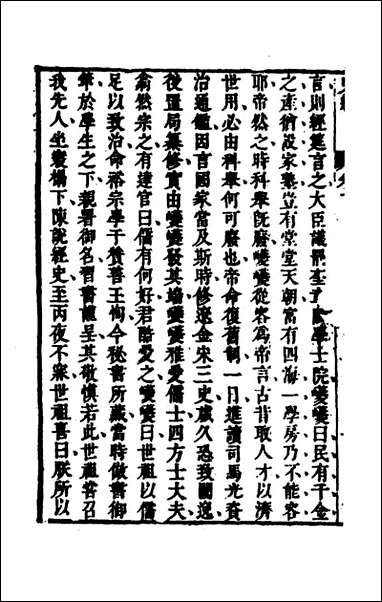 言則經筵言之大臣議罷奎學士院夔夔曰民有千金
之產猶設家塾豈有堂堂天朝富有四海一學房乃不能容
耶帝然之時科舉旣廢夔夔從容為帝言古昔取人才以濟
世用必由科舉何可廢也帝命復舊制一日進讀司馬光資
治通鑑因言國家當及斯時修遼金宋三史歲久恐致闕逸
後置局纂修實由夔夔發其端夔夔雅愛儒士四方士大夫
翕然宗之有達官曰儒有何好君酷愛之夔夔曰世祖以儒
足以致治命裕宗學于贊善王恂今秘書所藏當時倣書御
筆於學生之下親署御名習書謹呈其敬慎若此世祖嘗召
我先人坐寢榻下陳說經史至丙夜不寐世祖喜曰朕所以